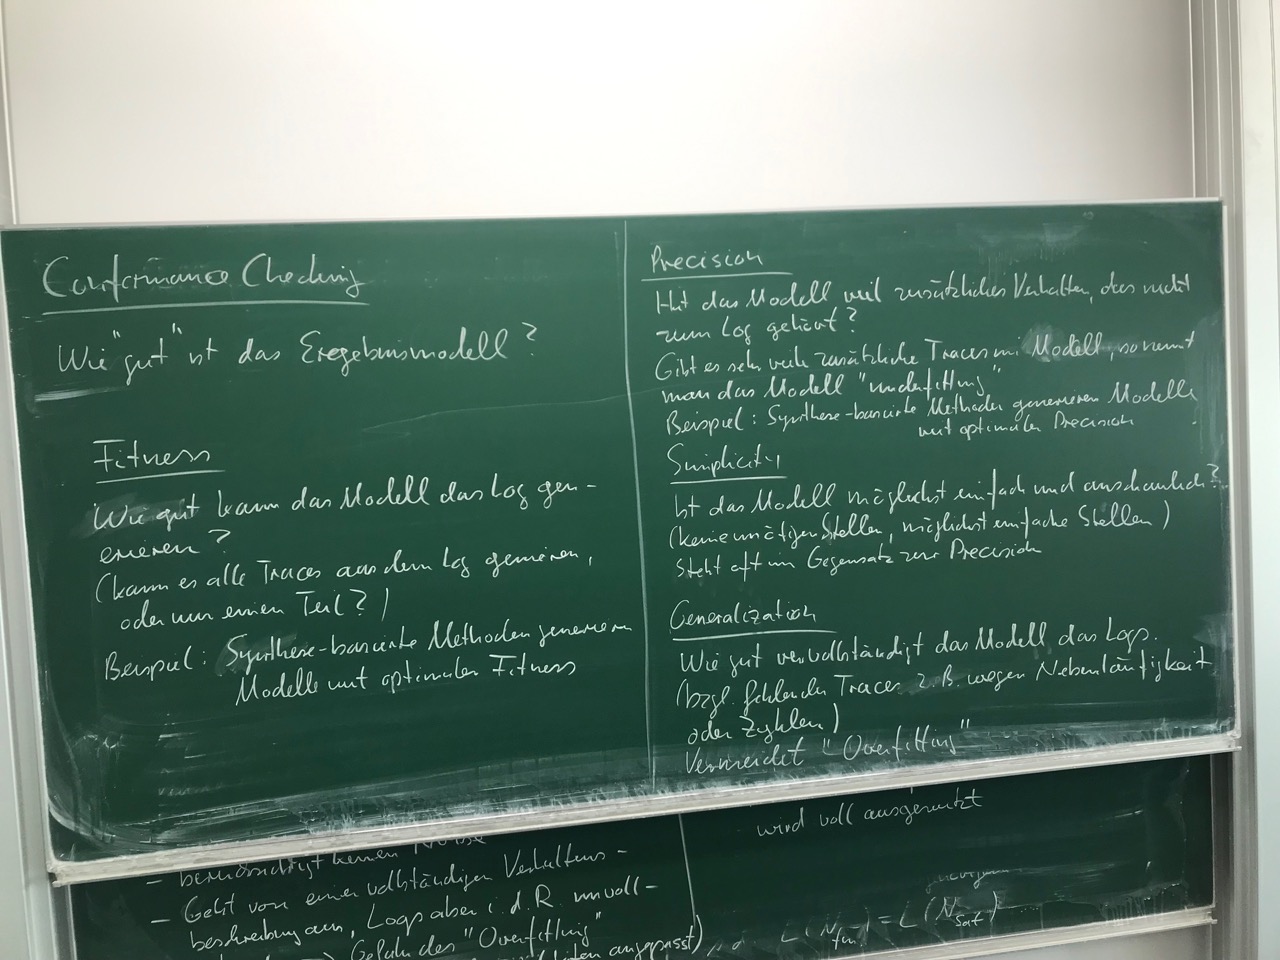 Conformance Checking
Wie "gut" ist das Eregebnismodell?
Fitness
Wie gut kann das Modell das Log gen-
erieren?
(kann es alle Traces aus dem Log generieren,
oder nur einen Teil?)
Beispiel: Synthese-basierte Methoden generieren
Modelle mit optimaler Fitness
Precision
Hat das Modell viel zusätzliches Verhalten, das nicht
zum Log gehört?
Gibt es sehr viele zusätzliche Traces im Modell, so nennt
man das Modell "underfitting"
Beispiel: Synthese-basierte Methoden generieren Modelle
mit optimaler Precision
Simplicity
Ist das Modell möglichst einfach und anschaulich?
(keine unnötigen Stellen, möglichst einfache Stellen)
Steht oft im Gegensatz zur Precision
Generalization
Wie gut vervollständigt das Modell das Logs.
(bzgl. fehlender Traces z.B. wegen Nebenläufigkeit
oder Zyklen)
Vermeidet "Overfitting"
- berücksichtigt keinen Noise
- Geht von einer vollständigen Verhaltens-
beschreibung aus, Logs aber i.d.R. unvoll-
Gefahr des "Overfitting"
angepasst)
wird voll ausgenutzt
L(N_fin) = L(N_sat)